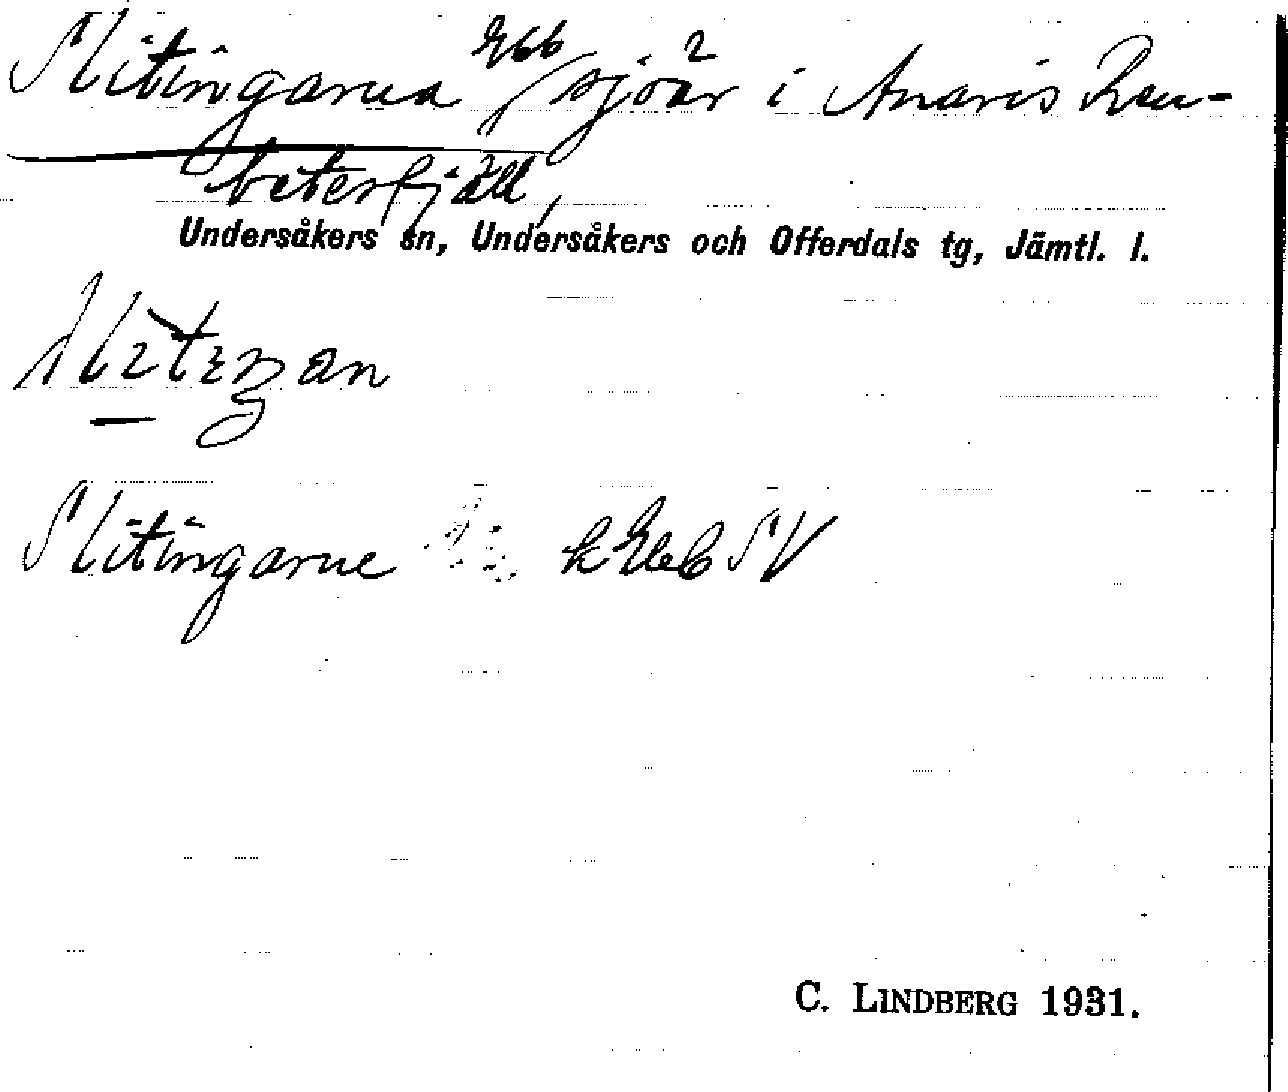 Slitingarna Ebb 2 sjöar i Anaris Ren-
betesfjäll,
Undersåkers sn, Undersåkers och Offerdals tg, Jämtl. l.
Slitingarne k Eleb SV
C. LINDBERG 1931.